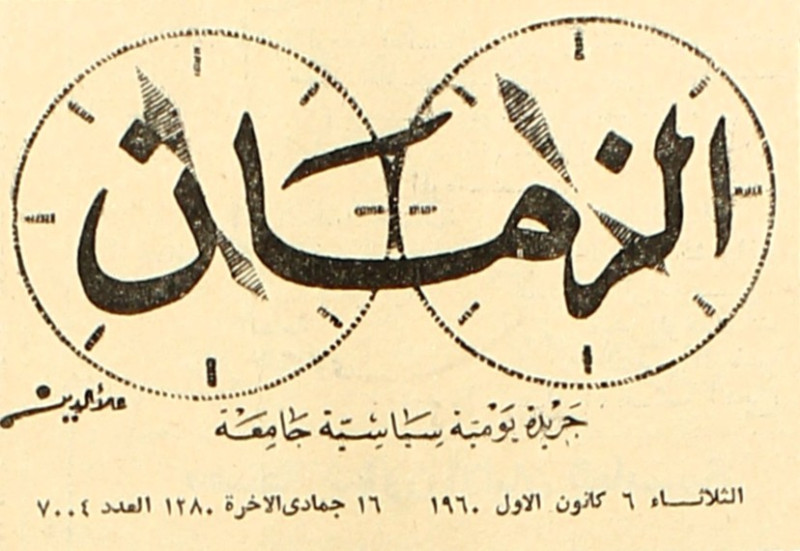 الزمان
علاءالدين
جَرِيْدَة يَوْمِيَّة سِيَاسِيَّة جَامِعَة
الثلاثـــاء ٦ كانون الاول ١٩٦٠ ١٦ جمادى الاخرة ١٢٨٠ العدد ٧٠٠٤